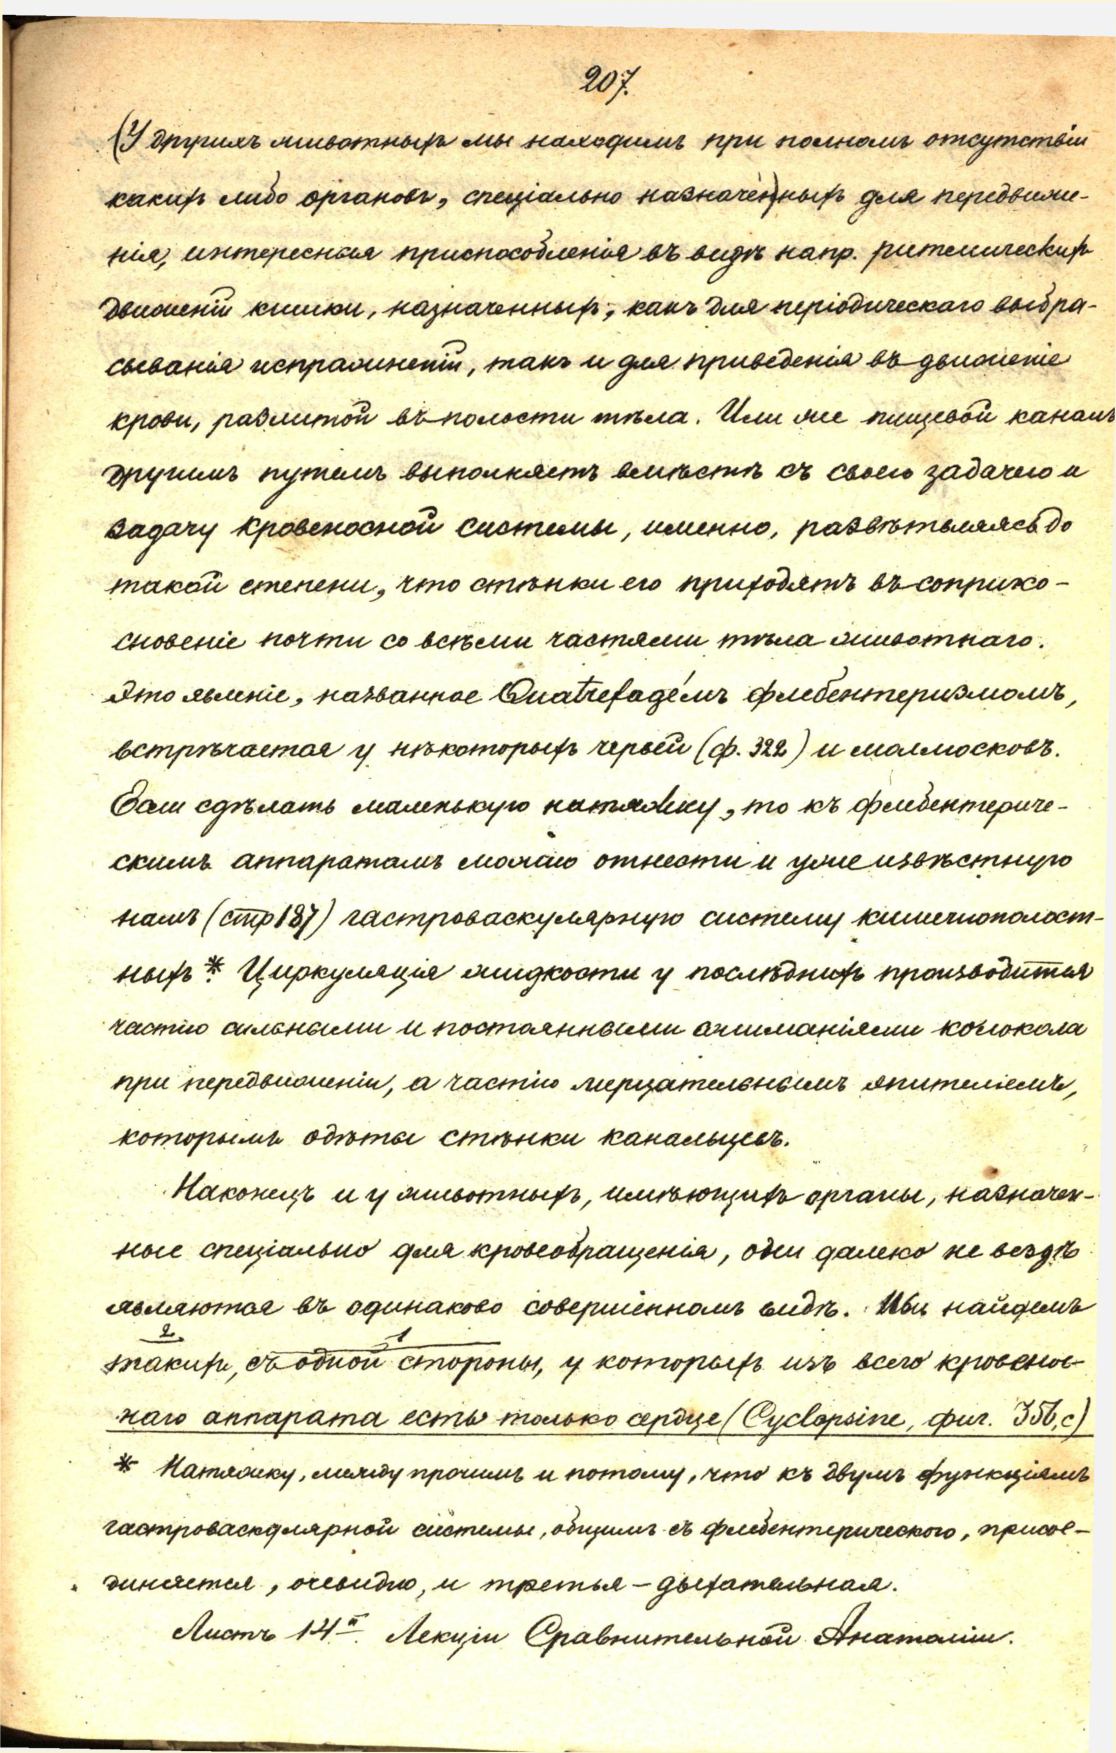 207.
(У другихъ животныхъ мы находимъ при полномъ отсутствіи
какихъ либо органовъ, спеціально назначенныхъ для передвиже-
нія, интересныя приспособленія въ видѣ напр. ритмическихъ
движеній кишки, назначенныхъ, какъ для періодическаго выбра-
сыванія испражненій, такъ и для приведенія въ движеніе
крови, разлитой въ полости тѣла. Или же пищевой каналъ
другимъ путемъ выполняетъ вмѣстѣ съ своею задачею и
задачу кровеносной системы, именно, развѣтвляясь до
такой степени, что стѣнки его приходятъ въ соприко-
сновеніе почти со всѣми частями тѣла животнаго.
Это явленіе, названное Quatrefagé'мъ флебентеризмомъ,
встрѣчается у нѣкоторыхъ червей (ф. 322) и моллюсковъ.
Если сдѣлать маленькую натяжку, то къ флебентериче-
скимъ аппаратамъ можно отнести и уже извѣстную
намъ (стр 187) гастроваскулярную систему кишечнополост-
ныхъ.* Циркуляція жидкости у послѣднихъ производится
частію сильными и постоянными сжиманіями колокола
при передвиженіи, а частію мерцательнымъ эпителіемъ,
которымъ одѣты стѣнки канальцевъ.
Наконецъ и у животныхъ, имѣющихъ органы, назначен-
ные спеціально для кровеобращенія, они далеко не вездѣ
являются въ одинаково совершенномъ видѣ. Мы найдемъ
2 1
такихъ, съ одной стороны, у которыхъ изъ всего кровенос-
наго аппарата есть только сердце (Cyclopsine, фиг. 356, c)
* Натяжку, между прочимъ и потому, что къ двумъ функціямъ
гастроваскулярной системы, общимъ съ флебентерическою, присое-
диняется, очевидно, и третья – дыхательная.
Листъ 14й. Лекціи Сравнительной Анатоміи.